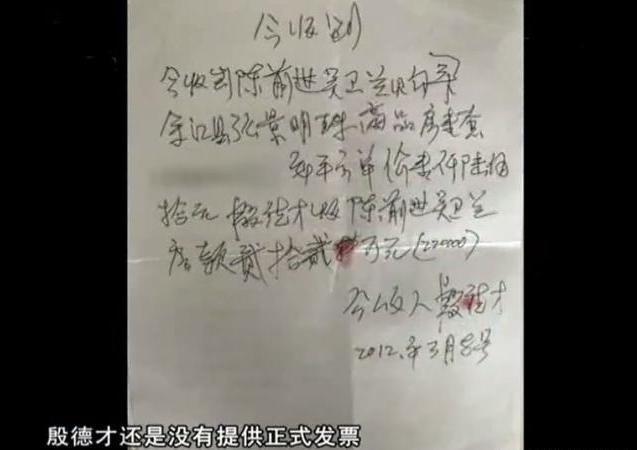 今收到
今收到陈前进吴卫兰
余江县 景明珠商品房壹套
每平方单价壹仟陆拾
拾元 殷德才收陈前进吴卫兰
房款贰拾贰万元(220000)
今收人殷德才
2012.年3月8号
殷德才还是没有提供正式发票